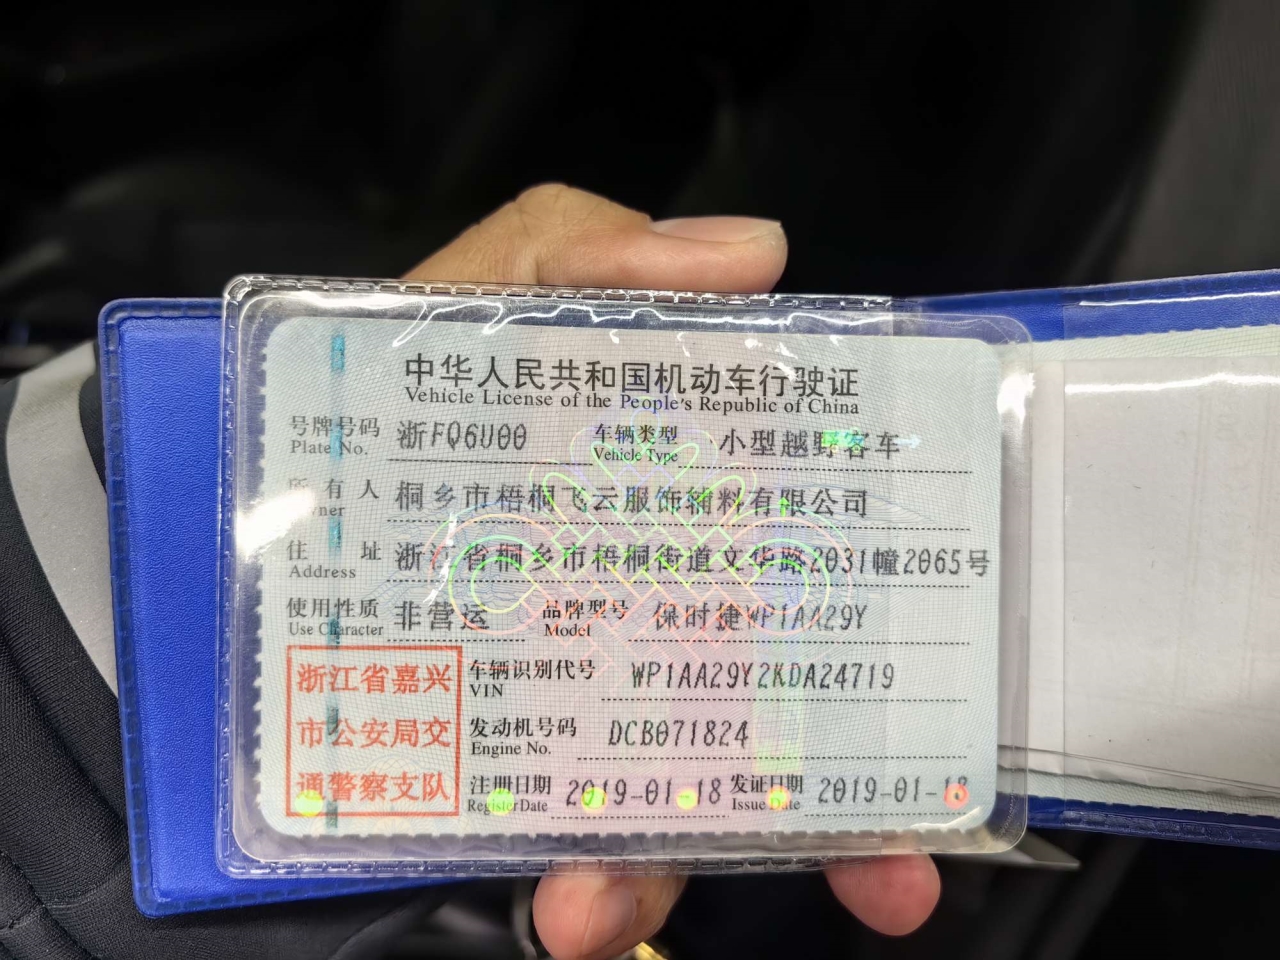 中华人民共和国机动车行驶证
Vehicle License of the People's Republic of China
号牌号码 浙FQ6U00 车辆类型 小型越野客车
Plate No. Vehicle Type
所有人 桐乡市梧桐飞云服饰辅料有限公司
Owner
住址 浙江省桐乡市梧桐街道文华路2031幢2065号
Address
使用性质 非营运 品牌型号 保时捷WP1AA29Y
Use Character Model
浙江省嘉兴
市公安局交
通警察支队
车辆识别代号 WP1AA29Y2KDA24719
VIN
发动机号码 DCB071824
Engine No.
注册日期 2019-01-18 发证日期 2019-01-18
Register Date Issue Date